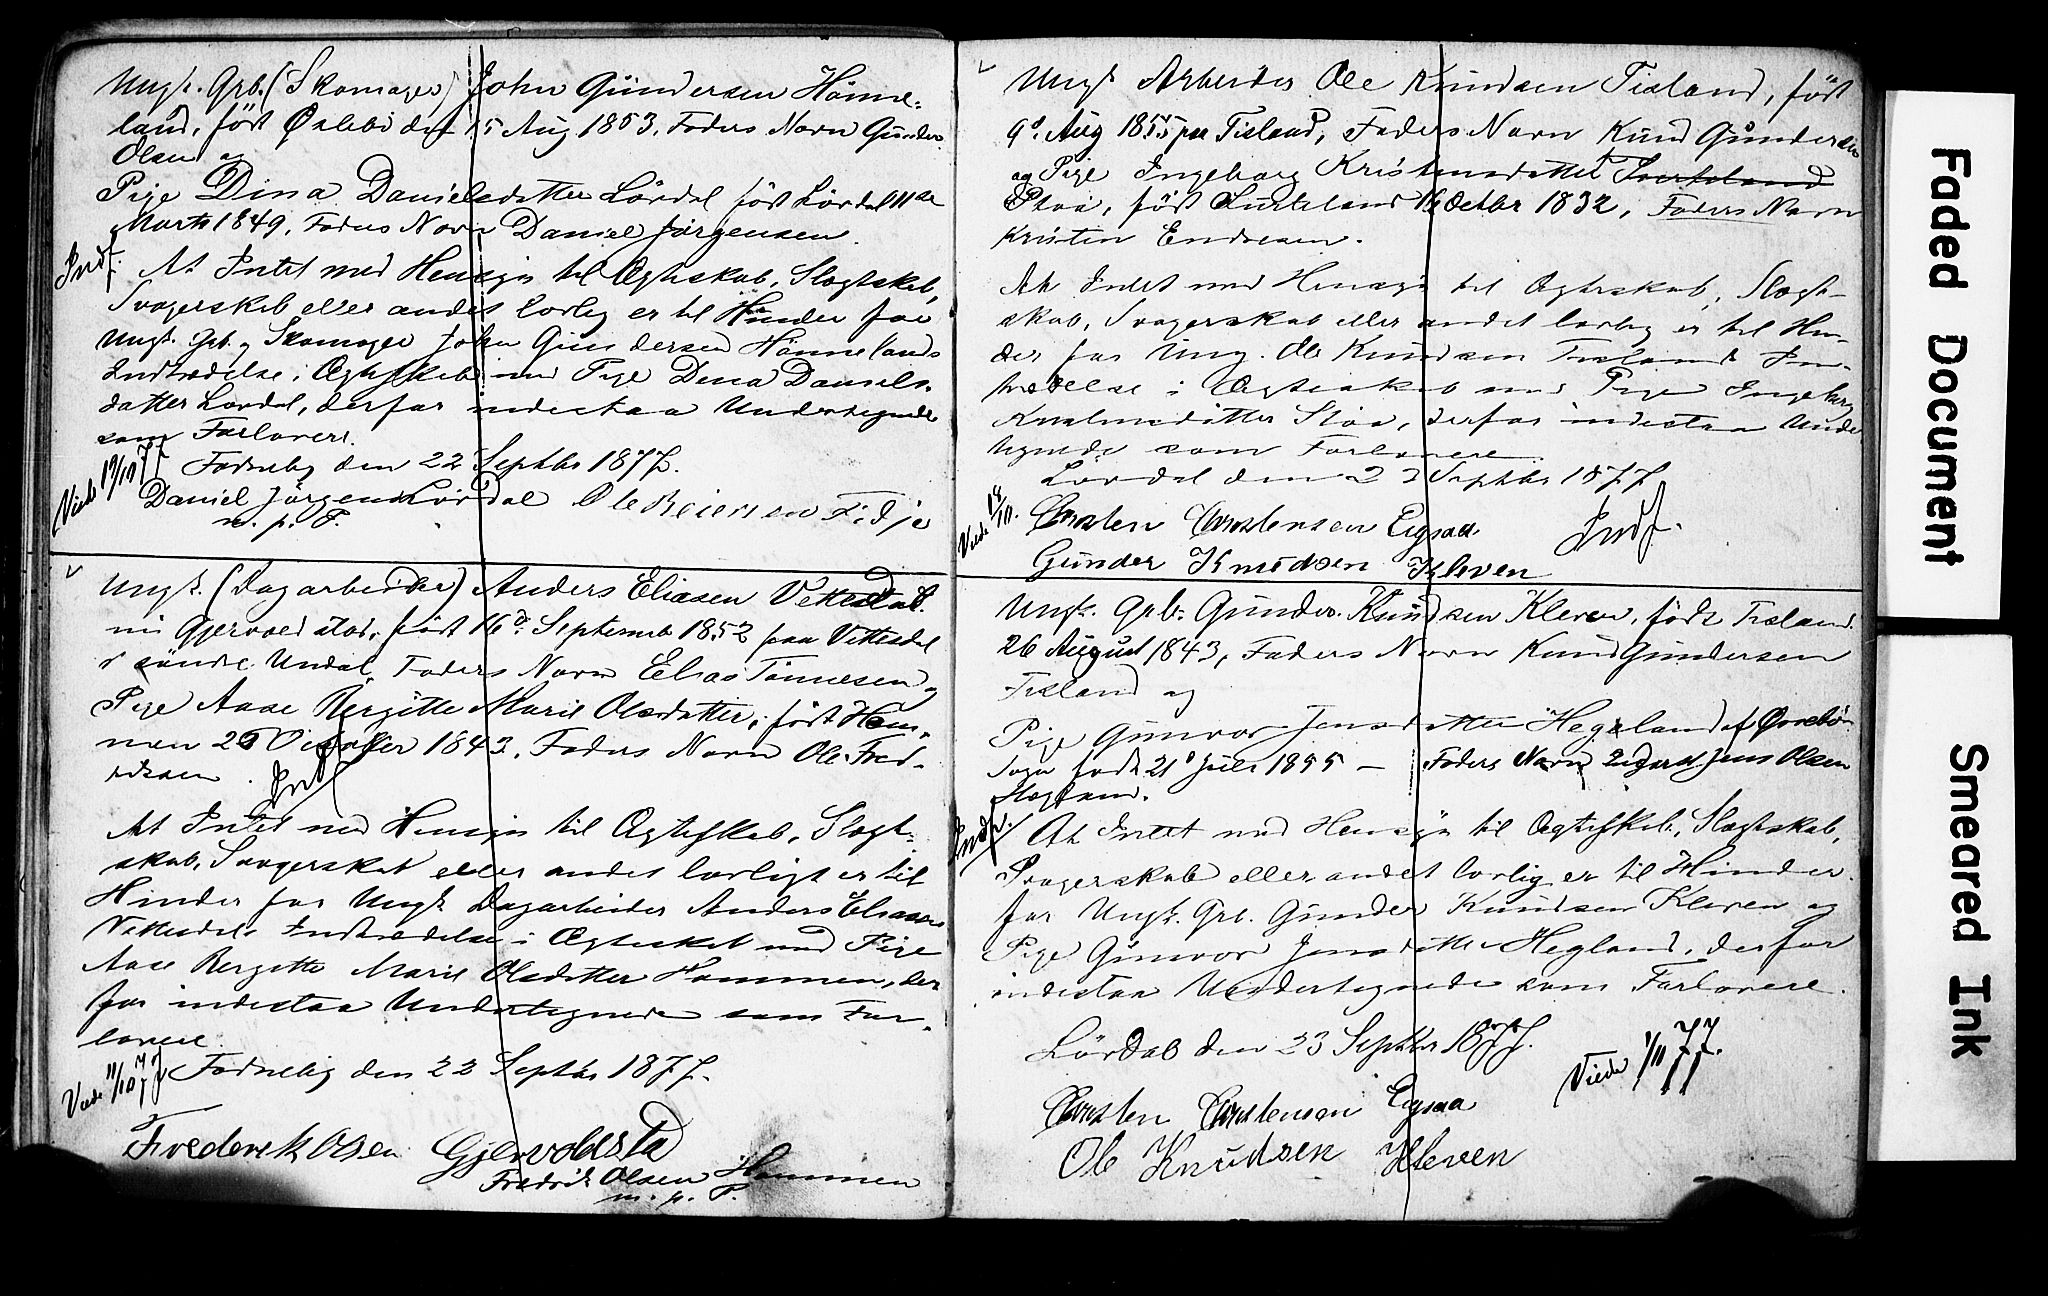 Ungk. Grb. (Skomager) John Gundersen Hønne-
land, født Øslebø den 15 Aug 1853, Faders Navn Gunder
Olsen og
Pige Dina Danielsdatter Lördal født Lördal 11te
Marts 1849, Faders Navn Daniel Jörgensen.
Indf.
At Intet med Hensyn til Ægteskab, Slægtskab,
Svogerskab eller andet lovlig er til Hinder for
Ungk. Grb. og Skomager John Gundersen Hönnelands
Indtrædelse i Ægteskab med Pige Dina Daniels-
datter Lordal, derfor indestaa Undertegnede
som Forlovere.
Viede 19/10 77
Fodneby den 22 Septbr 1877.
Daniel Jörgens Lördal Ole Reiersen Fidje
m. p. F.
Ungk. (Dagarbeider) Anders Eliasen Vettesdal.
nu Gjervoldstad, født 16de Septembr 1852 paa Vettesdal
i söndre Undal, Faders Navn Elias Tönnesen og
Pige Aase Bergitte Marie Olsdatter, født Hom-
men 26 October 1843, Faders Navn Ole Fred-
riksen.
Indf
At Intet med Hensyn til Ægteskab, Slægt-
skab, Svogerskab eller andet lovligt er til
Hinder for Ungk. Dagarbeider Anders Eliasen
Vettesdals Indtrædelse i Ægteskab med Pige
Aase Bergitte Marie Olsdatter Hommen, der-
for indestaa Undertegnede som For-
lovere.
Viede 11/10 77
Fodneby den 22 Septbr 1877.
Frederik Olsen Gjervolsta
Fredrik Olsen Hommen
m. p. F.
Ungk Arbeider Ole Knudsen Tisland, født
9de Aug 1855 paa Tisland, Faders Navn Knud Gundersen
og Pige Ingeborg Kristensdatter
Stoa, født 16 Octbr 1832, Faders Navn
Kristen Endresen.
At Intet med Hensyn til Ægteskab, Slægt-
skab, Svogerskab eller andet lovlig er til Hin-
der for Ung. Ole Knudsen Tislands In-
trædelse i Ægteskab med Pige Ingeborg
Stoa, derfor indestaa Under
tegnede som Forlovere.
Lördal den 23 Septbr 1877
Viede 18/10.
Carsten Carstensen Eigsaa
Indf.
Gunder Knudsen Kleven
Ungk. Grb. Gunder Knudsen Kleven, födt Tisland.
26 August 1843, Faders Navn Knud Gundersen
Tisland og
Pige Gunvor Jensdatter Hegeland af Øvrebö
Sogn født 21de Juli 1855 — Faders Navn Jens Olsen
Hægland.
Indf.
At Intet med Hensyn til Ægteskab, Slægtskab,
Svogerskab eller andet lovlig er til Hinder
for Ungk. Grb. Gunder Knudsen Kleven og
Pige Gunvor Jensdatter Hegland, derfor
indestaa Undertegnede som Forlovere.
Lördal den 23 Septbr 1877.
Viede 1/11 77.
Carsten Carstensen Eigsaa
Ole Knudsen Kleven
Faded Document
Smeared Ink